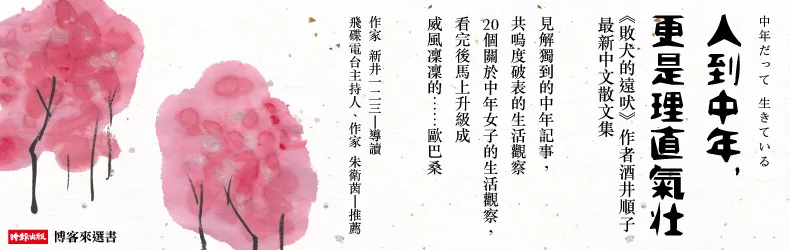 中年だって 生きている
人到中年，
更是理直氣壯
《敗犬的遠吠》作者酒井順子
最新中文散文集
見解獨到的中年記事，
共鳴度破表的生活觀察
20個關於中年女子的生活觀察，
看完後馬上升級成
威風凜凜的……歐巴桑
作家 新井一二三—導讀
飛碟電台主持人、作家 朱衛茵—推薦
時報出版
博客來選書